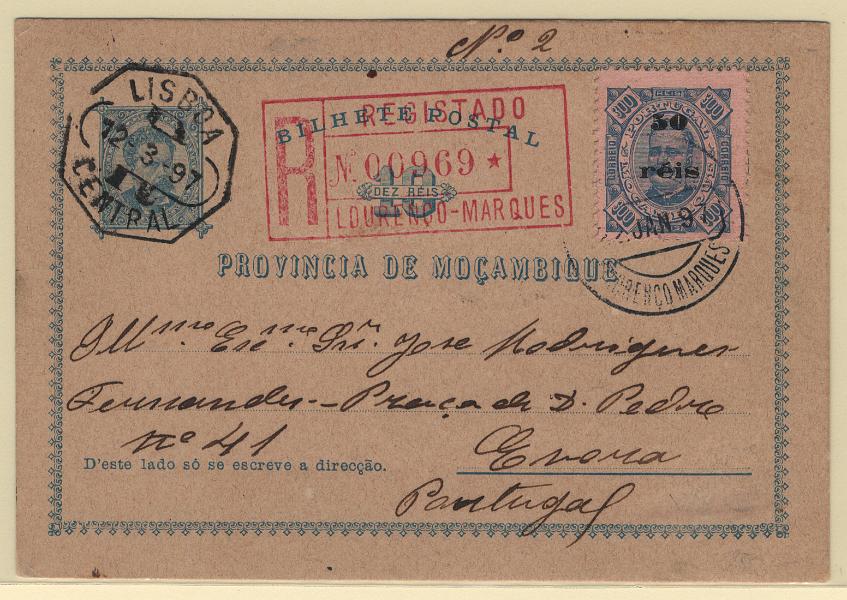 Nº 2
LISBOA
12-3-97
CENTRAL
BILHETE POSTAL
REGISTADO
R
Nº 00969 *
10
DEZ RÉIS
LOURENÇO-MARQUES
PORTUGAL
300
300
CORREIO
50
réis
MOÇAMBIQUE
300
300
JAN 9
LOURENÇO MARQUES
PROVINCIA DE MOÇAMBIQUE
Illmo. Exmo. Snr. Jose Rodrigues
Fernandes - Praça de D. Pedro
nº 41
D'este lado só se escreve a direcção.
Evora
Portugal